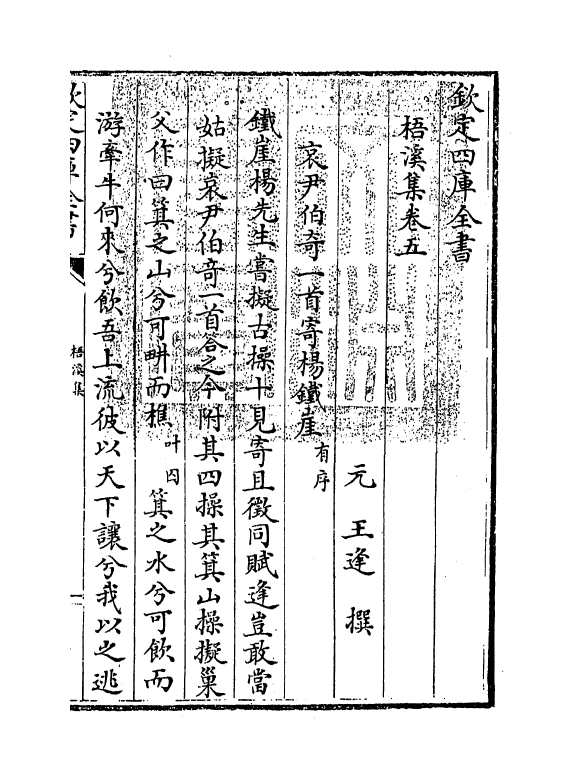 欽定四庫全書
梧溪集卷五
元 王逢 撰
哀尹伯奇一首寄楊鐵崖有序
鐵崖楊先生嘗擬古操十見寄且徵同賦逢豈敢當
姑擬哀尹伯奇一首答之今附其四操其箕山操擬巢
父作曰箕之山兮可畊而樵叶囚箕之水兮可飲而
游牽牛何來兮飲吾上流彼以天下讓兮我以之逃
欽定四庫全書
梧溪集
一